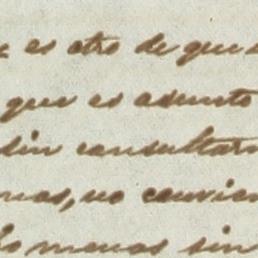 es otro de que
que es asunto
sin consultar
mas, no convien
lo menos sin